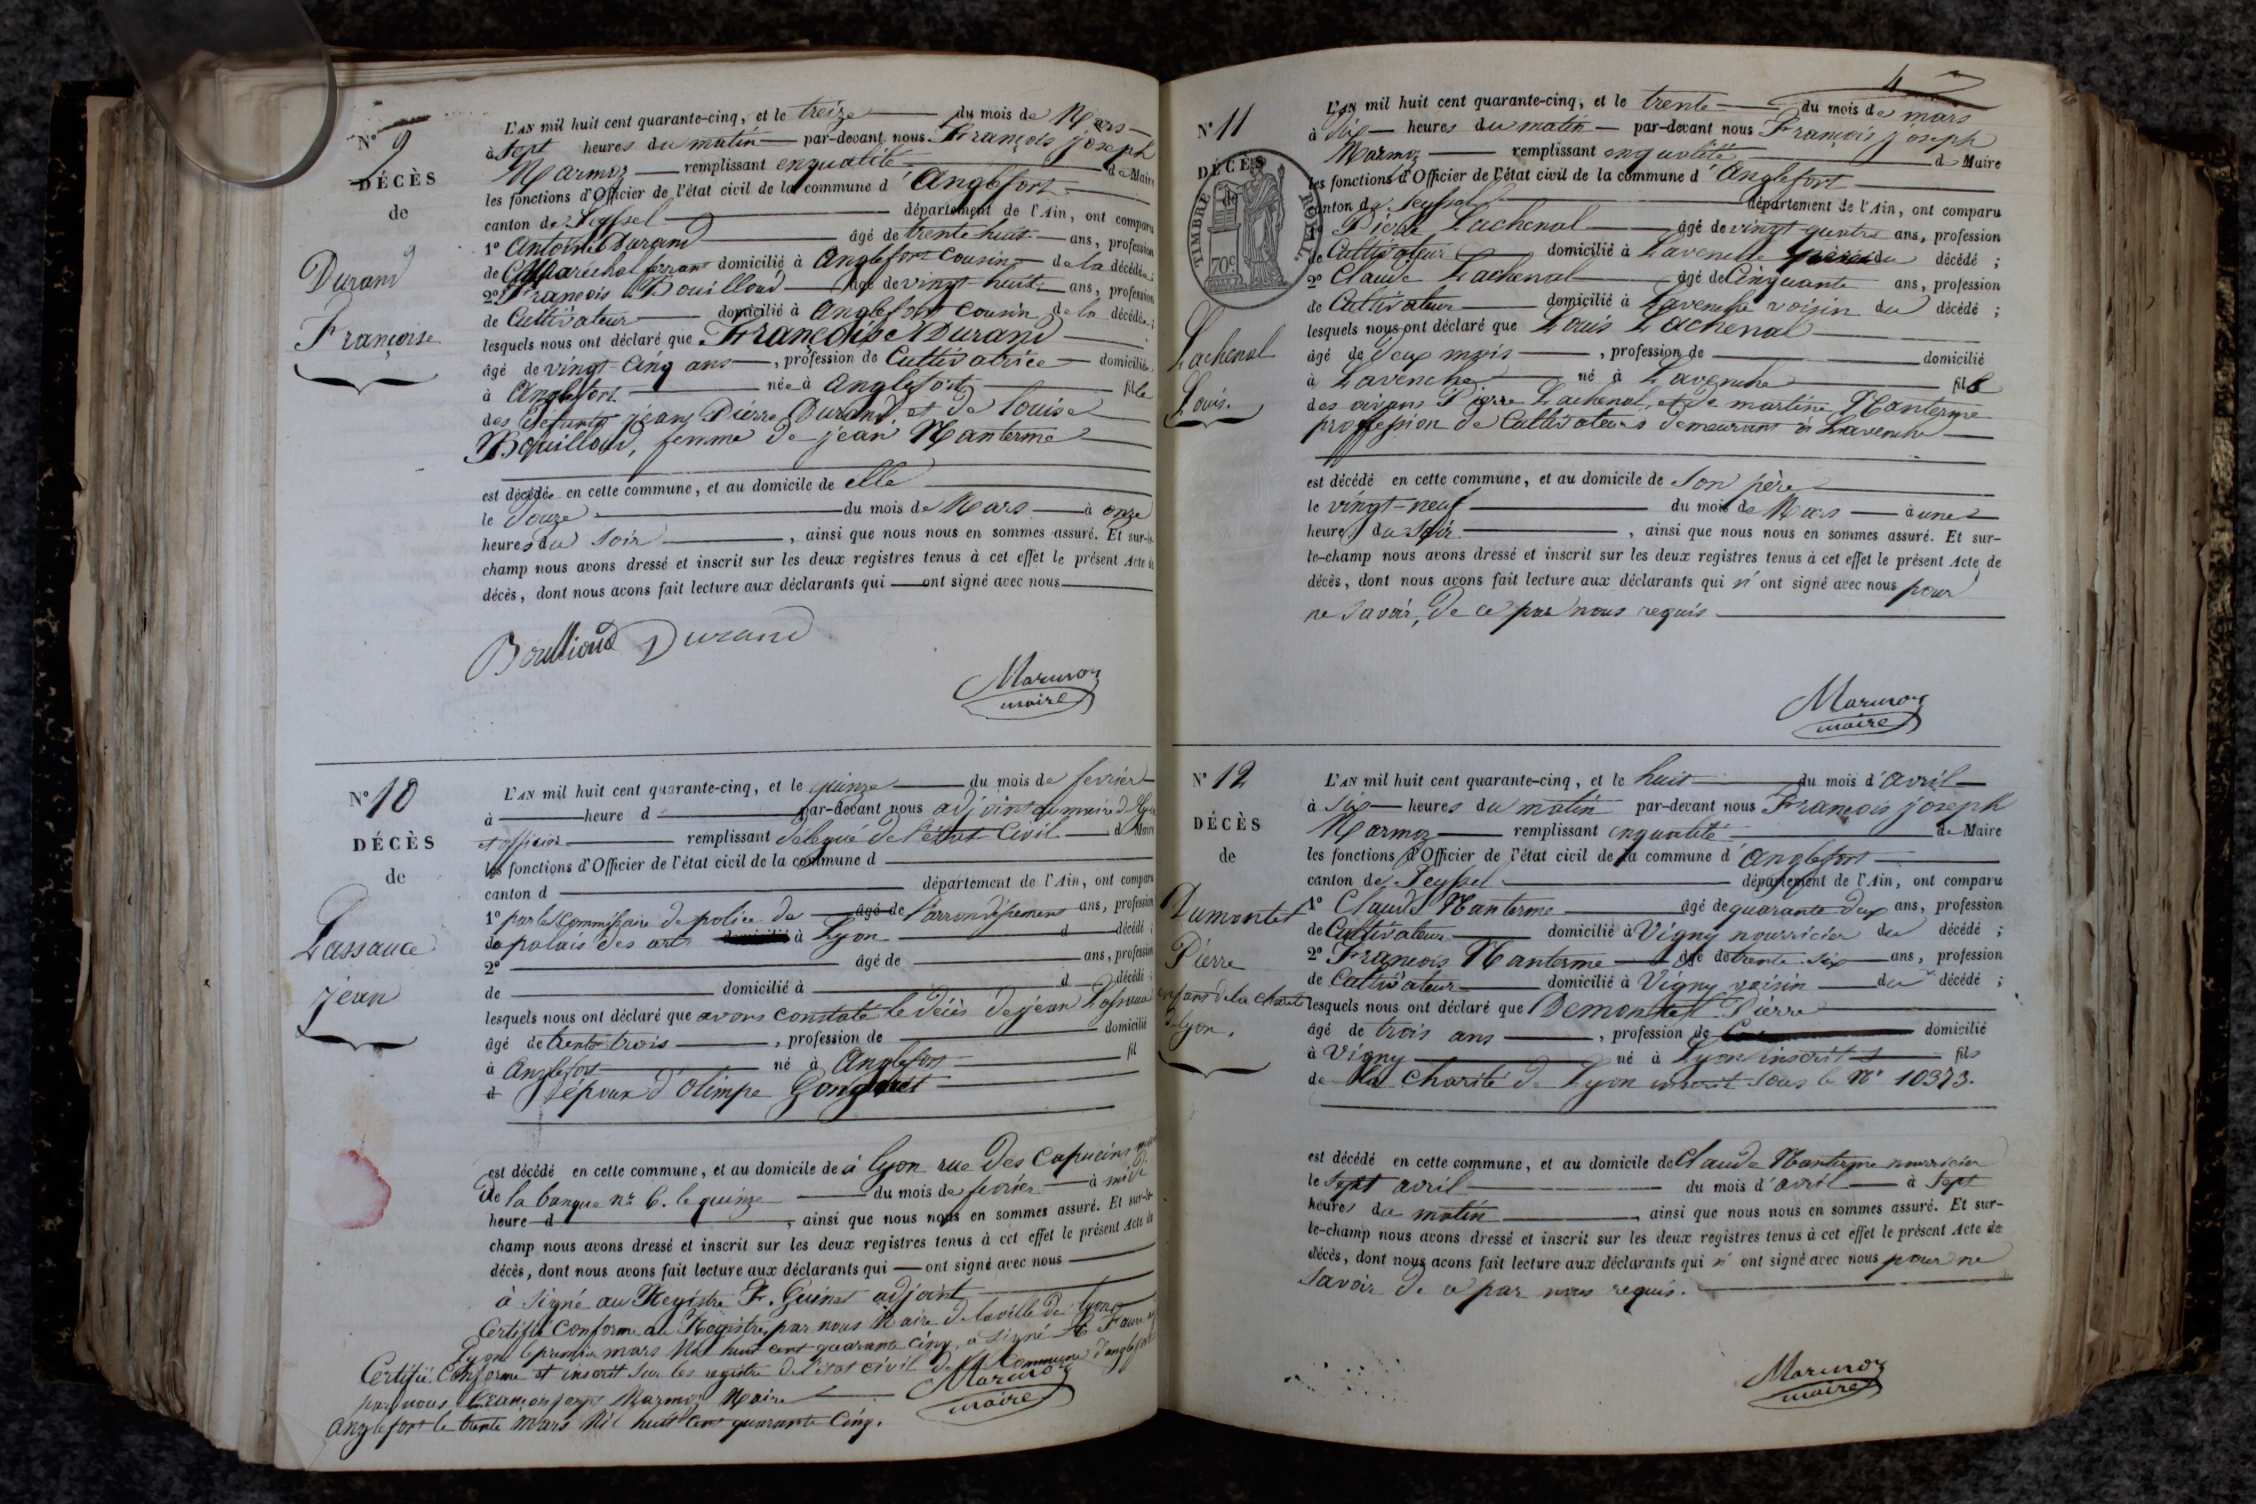 N° 9
DÉCÈS
de
Durand
Françoise
L'AN mil huit cent quarante-cinq, et le treize du mois de Mars
à sept heures du matin par-devant nous François joseph
Marmoz remplissant enqualité de Maire
les fonctions d'Officier de l'état civil de la commune d'Anglefort
canton de Seyssel département de l'Ain, ont comparu
1° Antoine Durand âgé de trente huit ans, profession
de Maréchal ferrant domicilié à Anglefort cousin de la décédée;
2° François Bouilloud âgé de vingt huit ans, profession
de Cultivateur domicilié à Anglefort cousin de la décédée;
lesquels nous ont déclaré que Françoise Durand
âgé de vingt-cinq ans, profession de Cultivatrice domiciliée
à Anglefort née à Anglefort fille
des défunts jean Pierre Durand et de louise
Bouilloud, femme de jean Nanterme
est décédée en cette commune, et au domicile de elle
le Douze du mois de Mars à onze
heures du soir, ainsi que nous nous en sommes assuré. Et sur-le-
champ nous avons dressé et inscrit sur les deux registres tenus à cet effet le présent Acte de
décès, dont nous avons fait lecture aux déclarants qui ont signé avec nous
Boullioud Durand
Marmoz
maire
N° 10
DÉCÈS
de
Lassauce
jean
L'AN mil huit cent quarante-cinq, et le quinze du mois de fevrier
à heure d par-devant nous adjoint au maire de Lyon
et officier remplissant délégué de l'état Civil d Maire
les fonctions d'Officier de l'état civil de la commune d
canton d département de l'Ain, ont comparu
1° par le Commissaire de police de âgé de l'arrondissement ans, profession
de palais des arts domicilié à Lyon d décédé;
2° âgé de ans, profession
de domicilié à d décédé;
lesquels nous ont déclaré que avons constaté le décès de jean Lassauce
âgé de trente trois, profession de domicilié
à Anglefort né à Anglefort fil
d époux d'olimpe
est décédé en cette commune, et au domicile de à lyon rue des Capucins
de la banque n° 6. le quinze du mois de fevrier à midi
heure d, ainsi que nous nous en sommes assuré. Et sur-le-
champ nous avons dressé et inscrit sur les deux registres tenus à cet effet le présent Acte de
décès, dont nous avons fait lecture aux déclarants qui ont signé avec nous
à signé au Registre F. Guinet adjoint
Certifié Conforme au Registre, par nous Maire de la ville de lyon
Lyon le premier mars Mil huit cent quarante cinq, a signé
Certifié Conforme et inscrit sur les registre de l'état civil de la Commune d'anglefort
par nous François joseph Marmoz Maire
Anglefort le trente Mars Mil huit cent quarante cinq.
Marmoz
maire
4
N° 11
DÉCÈS
de
TIMBRE ROYAL
70c
Lachenal
Louis.
L'AN mil huit cent quarante-cinq, et le trente du mois de mars
à dix heures du matin par-devant nous François joseph
Marmoz remplissant enqualité d Maire
les fonctions d'Officier de l'état civil de la commune d'Anglefort
canton de Seyssel département de l'Ain, ont comparu
Pierre Lachenal âgé de vingt quatre ans, profession
de Cultivateur domicilié à Lavenche père du décédé;
2° Claude Lachenal âgé de Cinquante ans, profession
de Cultivateur domicilié à Lavenche voisin du décédé;
lesquels nous ont déclaré que Louis Lachenal
âgé de deux mois, profession de domicilié
à Lavenche né à Lavenche fils
des vivans Pierre Lachenal, et de martine Nanterme
proffession de Cultivateurs demeurant à Lavenche
est décédé en cette commune, et au domicile de son père
le vingt-neuf du mois de Mars à une
heure du soir, ainsi que nous nous en sommes assuré. Et sur-
le-champ nous avons dressé et inscrit sur les deux registres tenus à cet effet le présent Acte de
décès, dont nous avons fait lecture aux déclarants qui n'ont signé avec nous pour
ne savoir, de ce par nous requis
Marmoz
maire
N° 12
DÉCÈS
de
Dumontet
Pierre
enfant de la charité
de lyon.
L'AN mil huit cent quarante-cinq, et le huit du mois d'avril
à six heures du matin par-devant nous François joseph
Marmoz remplissant enqualité de Maire
les fonctions d'Officier de l'état civil de la commune d'Anglefort
canton de Seyssel département de l'Ain, ont comparu
1° Claude Nanterme âgé de quarante deux ans, profession
de Cultivateur domicilié à Vigny nourricier du décédé;
2° François Nanterme âgé de trente six ans, profession
de Cultivateur domicilié à Vigny voisin du décédé;
lesquels nous ont déclaré que Demontet Pierre
âgé de trois ans, profession de domicilié
à Vigny né à Lyon inscrit fils
de la charité de Lyon inscrit sous le N° 10373.
est décédé en cette commune, et au domicile de Claude Nanterme nourricier
le sept avril du mois d'avril à sept
heures du matin, ainsi que nous nous en sommes assuré. Et sur-
le-champ nous avons dressé et inscrit sur les deux registres tenus à cet effet le présent Acte de
décès, dont nous avons fait lecture aux déclarants qui n'ont signé avec nous pour ne
savoir de ce par nous requis.
Marmoz
maire